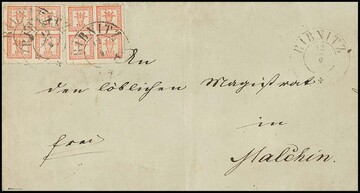 RIBNITZ
RIBNITZ
RIBNITZ
An
den löblichen Magistrat
frei
in
Malchin.